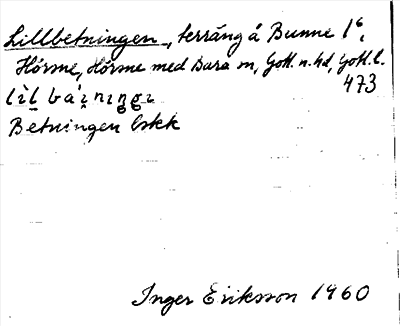 Lillbetningen, terräng å Bunne 1⁶,
Hörsne, Hörsne med Bara sn, Gotl. n. hd, Gotl. l.
473
Betningen Estk
Inger Eriksson 1960